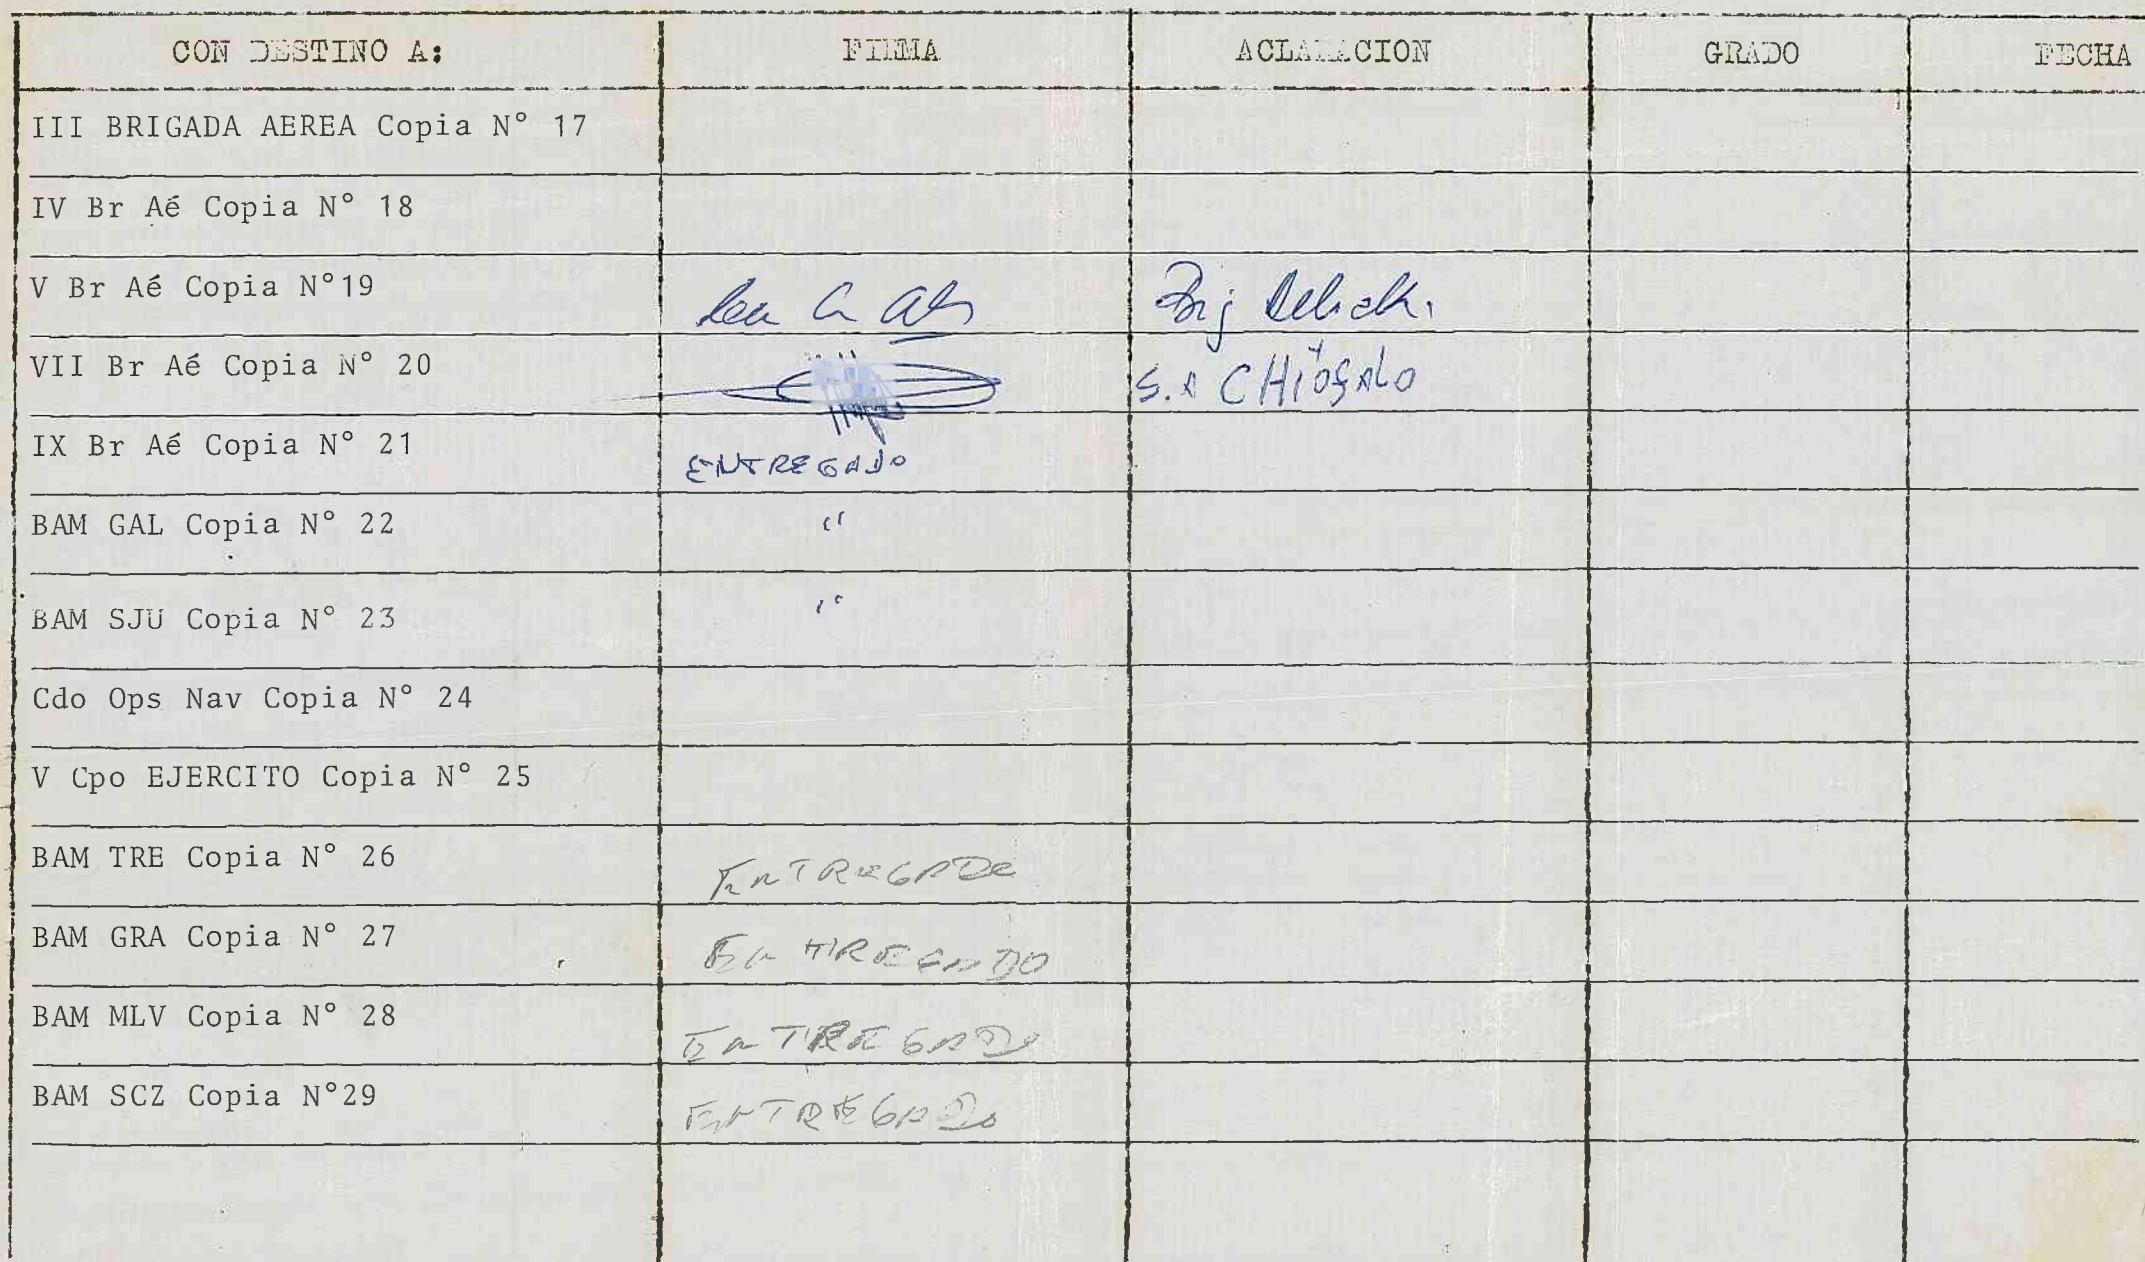 CON DESTINO A: FIRMA ACLARACION GRADO FECHA
III BRIGADA AEREA Copia N° 17
IV Br Aé Copia N° 18
V Br Aé Copia N°19
VII Br Aé Copia N° 20 S.A CHIÓGALO
IX Br Aé Copia N° 21 ENTREGADO
BAM GAL Copia N° 22 "
BAM SJU Copia N° 23 "
Cdo Ops Nav Copia N° 24
V Cpo EJERCITO Copia N° 25
BAM TRE Copia N° 26 ENTREGADO
BAM GRA Copia N° 27 ENTREGADO
BAM MLV Copia N° 28 ENTREGADO
BAM SCZ Copia N°29 ENTREGADO